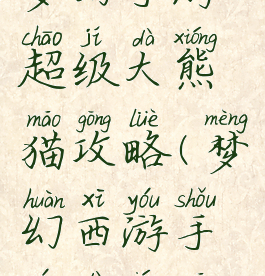 chāo jí dà xióng
超级大熊
māo gōng lüè mèng
猫攻略(梦
huàn xī yóu shǒu
幻西游手